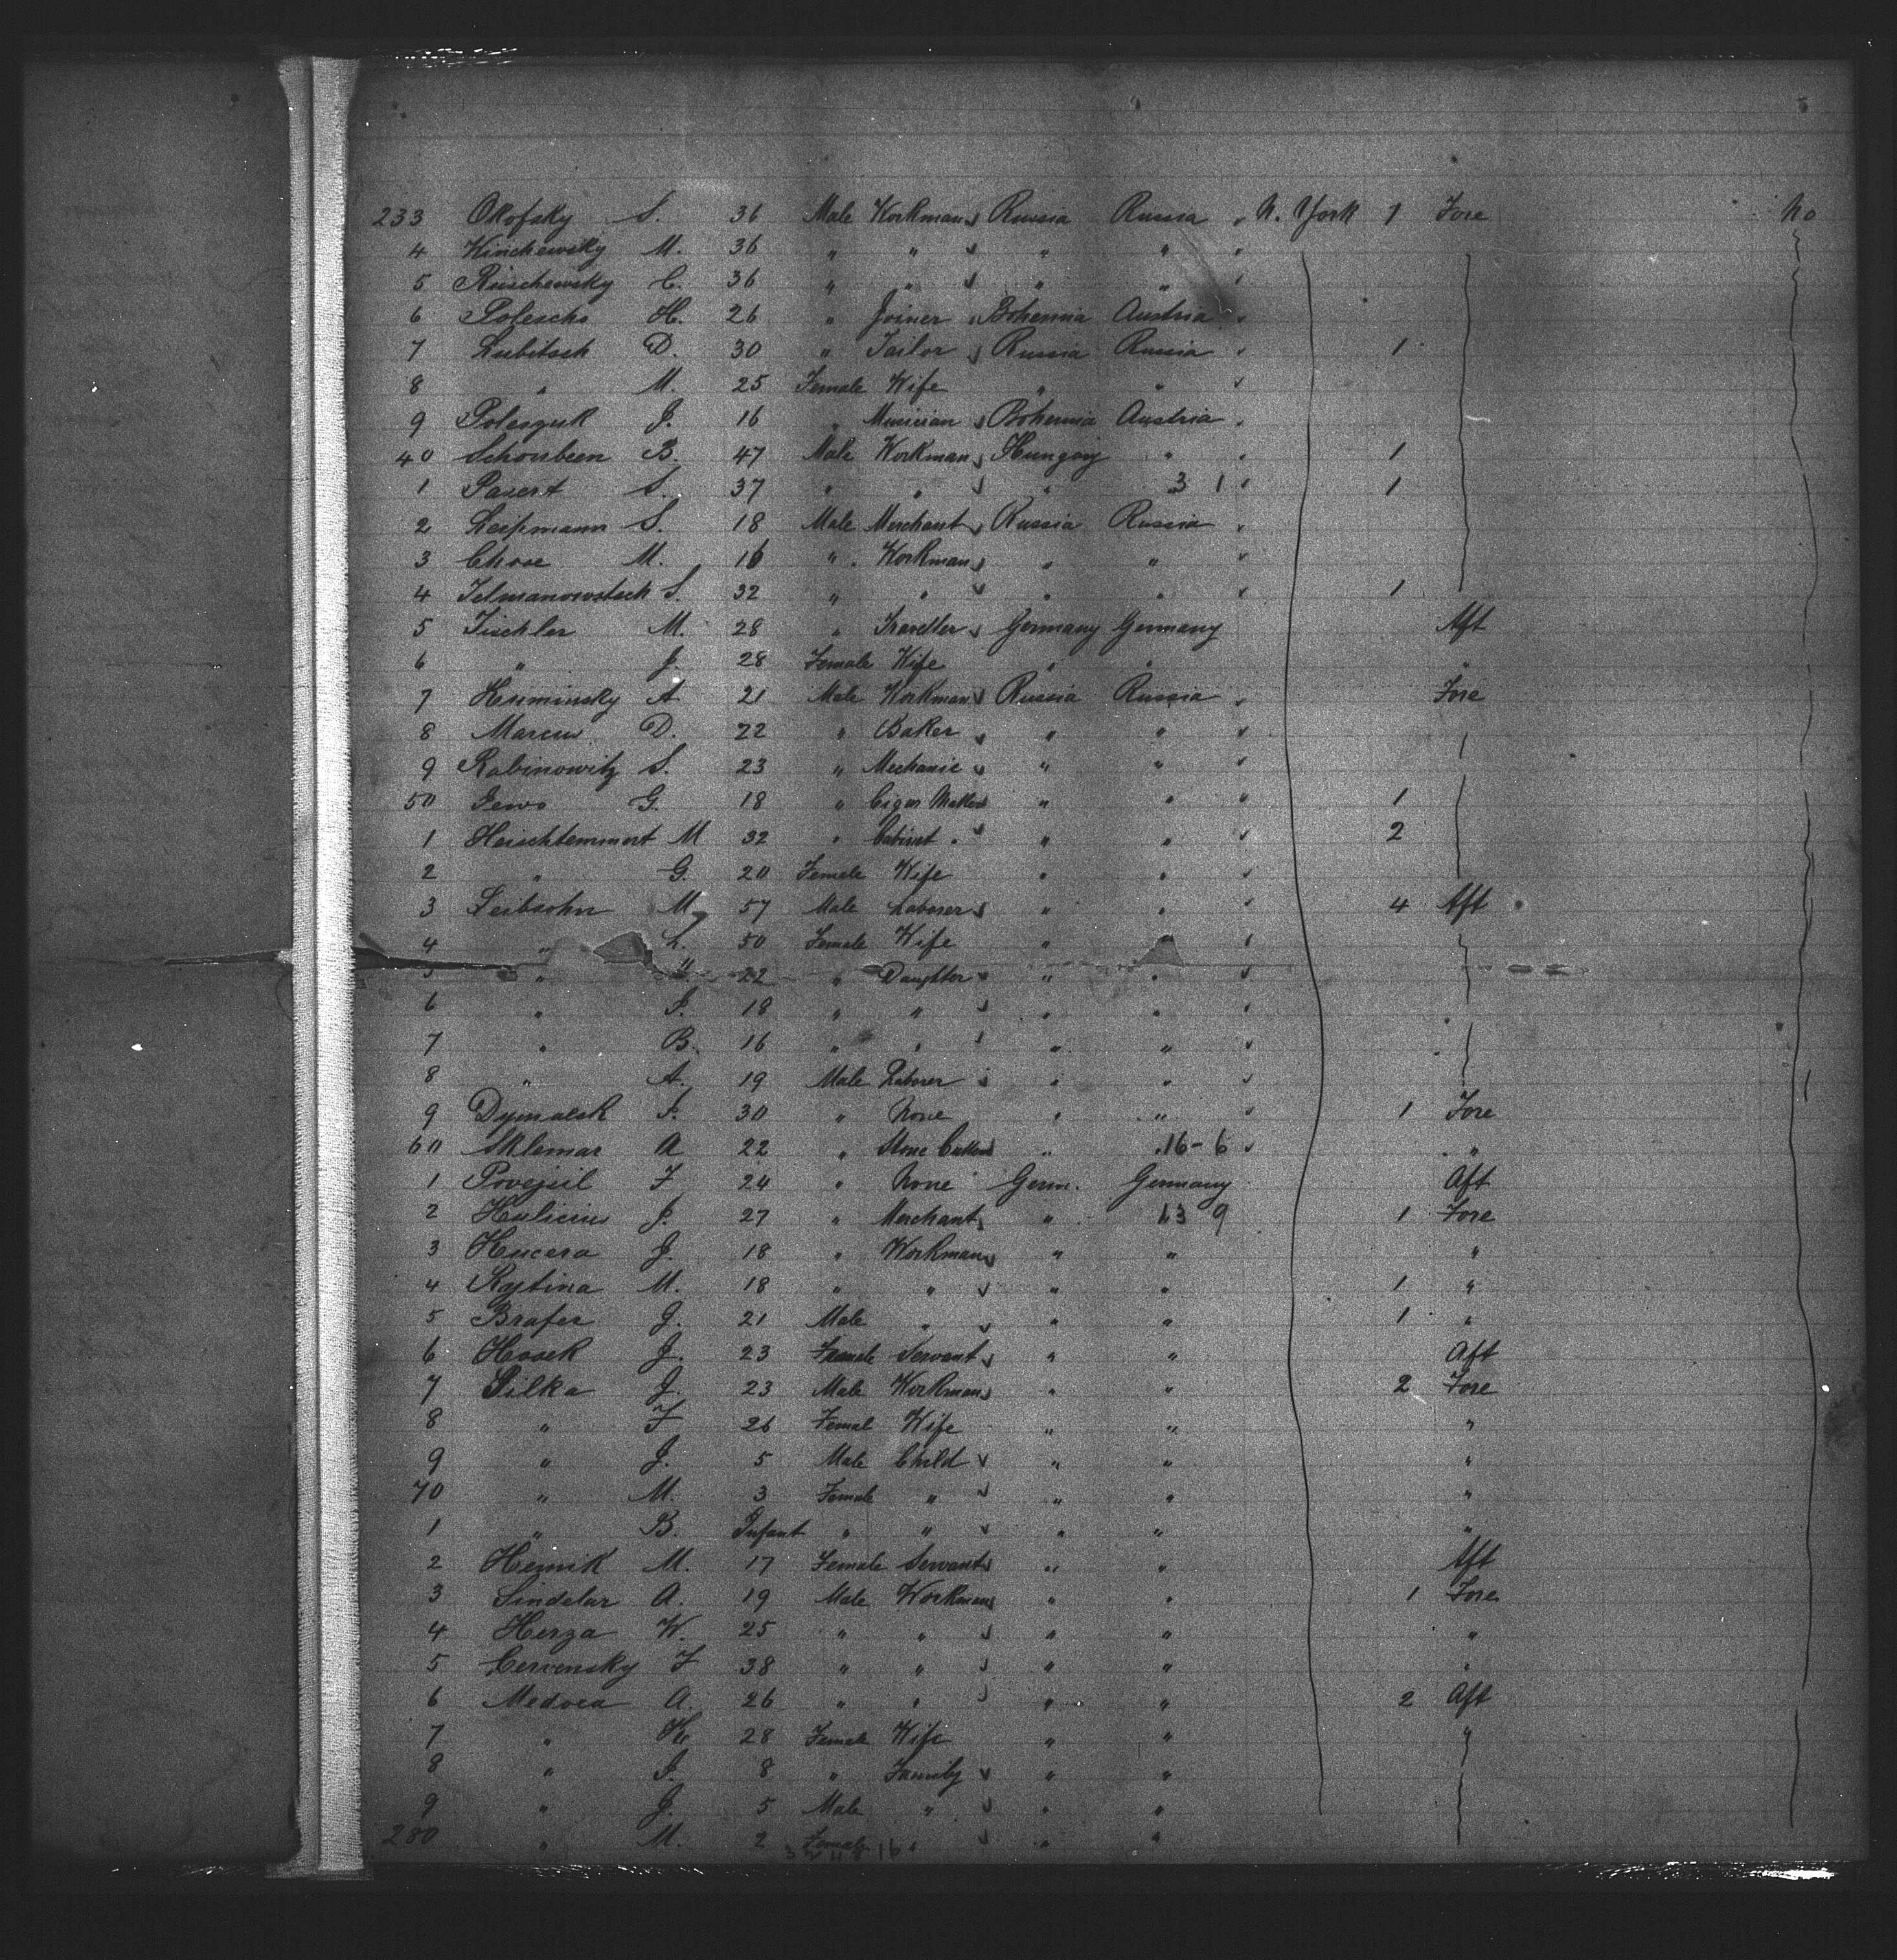 233 Okofsky S. 36 Male Workman Russia Russia N. York 1 Fore No
4 Winchewsky M. 36 " " " "
5 Ruschewsky C. 36 " " " "
6 Polescho H. 26 " Joiner Bohemia Austria
7 Lubitsch D. 30 " Tailor Russia Russia 1
8 " M. 25 Female Wife " "
9 Poleszuk J. 16 " Musician Bohemia Austria
40 Schonbeen B. 47 Male Workman Hungary " 1
1 Pavert S. 37 " " " " 3 1 1
2 Leipmann S. 18 Male Merchant Russia Russia
3 Chose M. 16 " Workman " "
4 S. 32 " " " " 1
5 Tischler M. 28 " Traveller Germany Germany Aft
6 " J. 28 Female Wife " " "
7 Kuminsky A 21 Male Workman Russia Russia Fore
8 Marcus D. 22 " Baker " "
9 Rabinowitz S. 23 " Mechanic " "
50 G. 18 " Cigar Maker " " 1
1 M 32 " Cabinet " " " 2
2 " G. 20 Female Wife " "
3 Leibsohn M. 57 Male Laborer " " 4 Aft
4 " L. 50 Female Wife " "
5 " " 22 " Daughter " "
6 " S. 18 " " " "
7 " B. 16 " " " "
8 " A. 19 Male Laborer " "
9 Dymalsk S. 30 " None " " 1 Fore
60 Sklemar A 22 " Stone Cutter " " 16-6 "
1 Povejsil F 24 " None Germ. Germany Aft
2 Hulicius J. 27 " Merchant " 13 9 1 Fore
3 Kucera J. 18 " Workman " " "
4 Rytina M. 18 " " " " 1 "
5 Brafer J. 21 Male " " " 1 "
6 Hosek J. 23 Female Servant " " Aft
7 Silka J. 23 Male Workman " " 2 Fore
8 " F 26 Femal Wife " " "
9 " J. 5 Male Child " " "
70 " M. 3 Female " " " "
1 " B. Infant " " " " "
2 Hemik M. 17 Female Servant " " Aft
3 Sindelar A. 19 Male Workman " " 1 Fore
4 Herza W. 25 " " " " "
5 Cervensky F 38 " " " " "
6 Medvea A. 26 " " " " 2 Aft
7 " K 28 Female Wife " " "
8 " S. 8 " Family " "
9 " J. 5 Male " " "
280 " M. 2 Female " " "